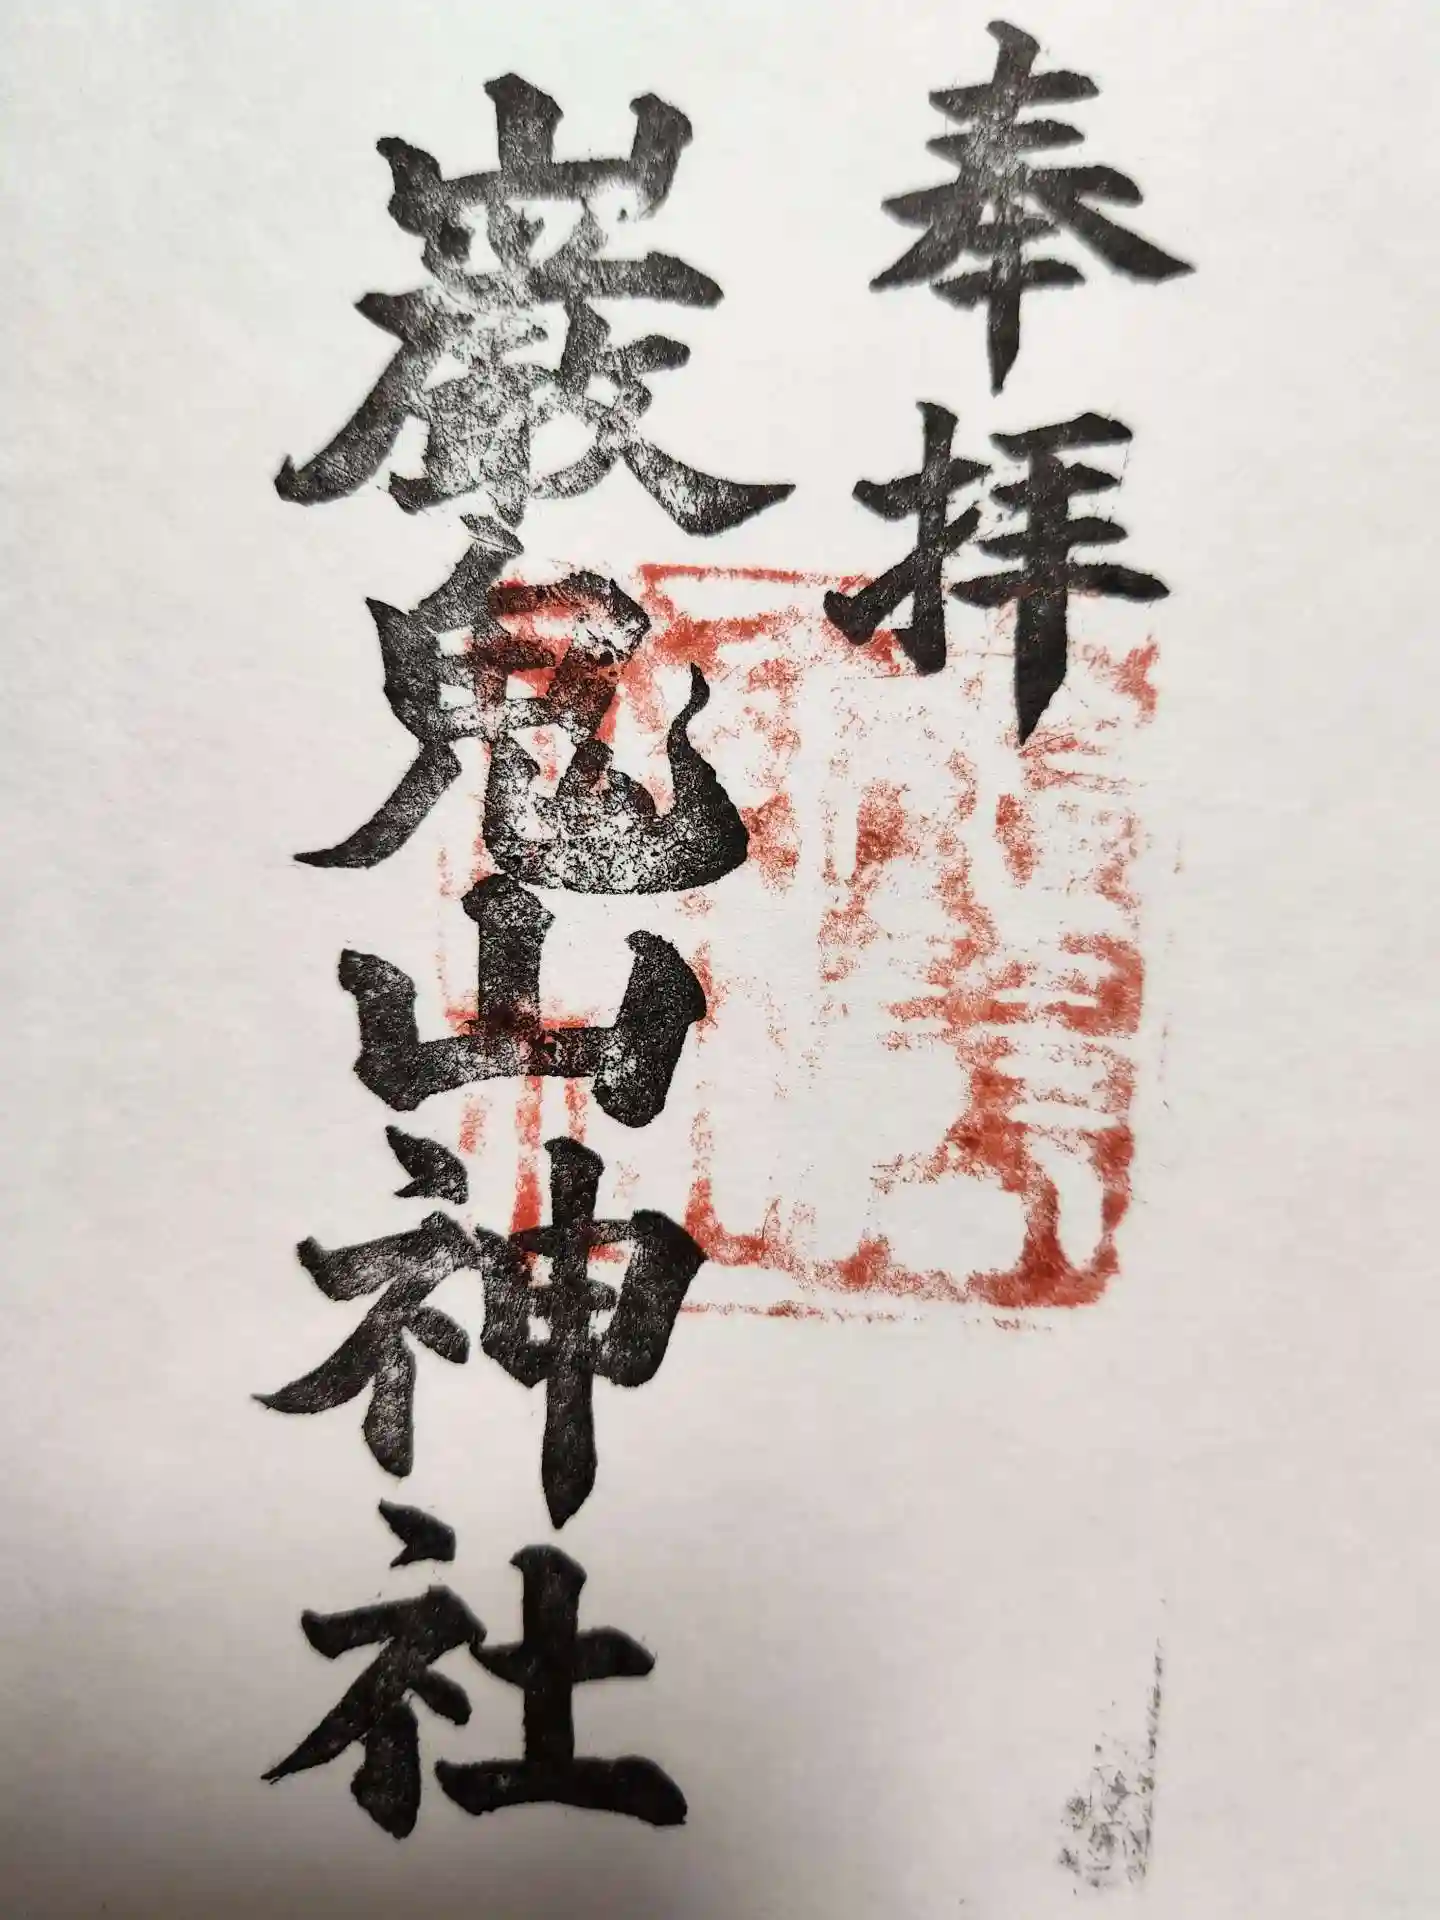 奉拝
巌鬼山神社